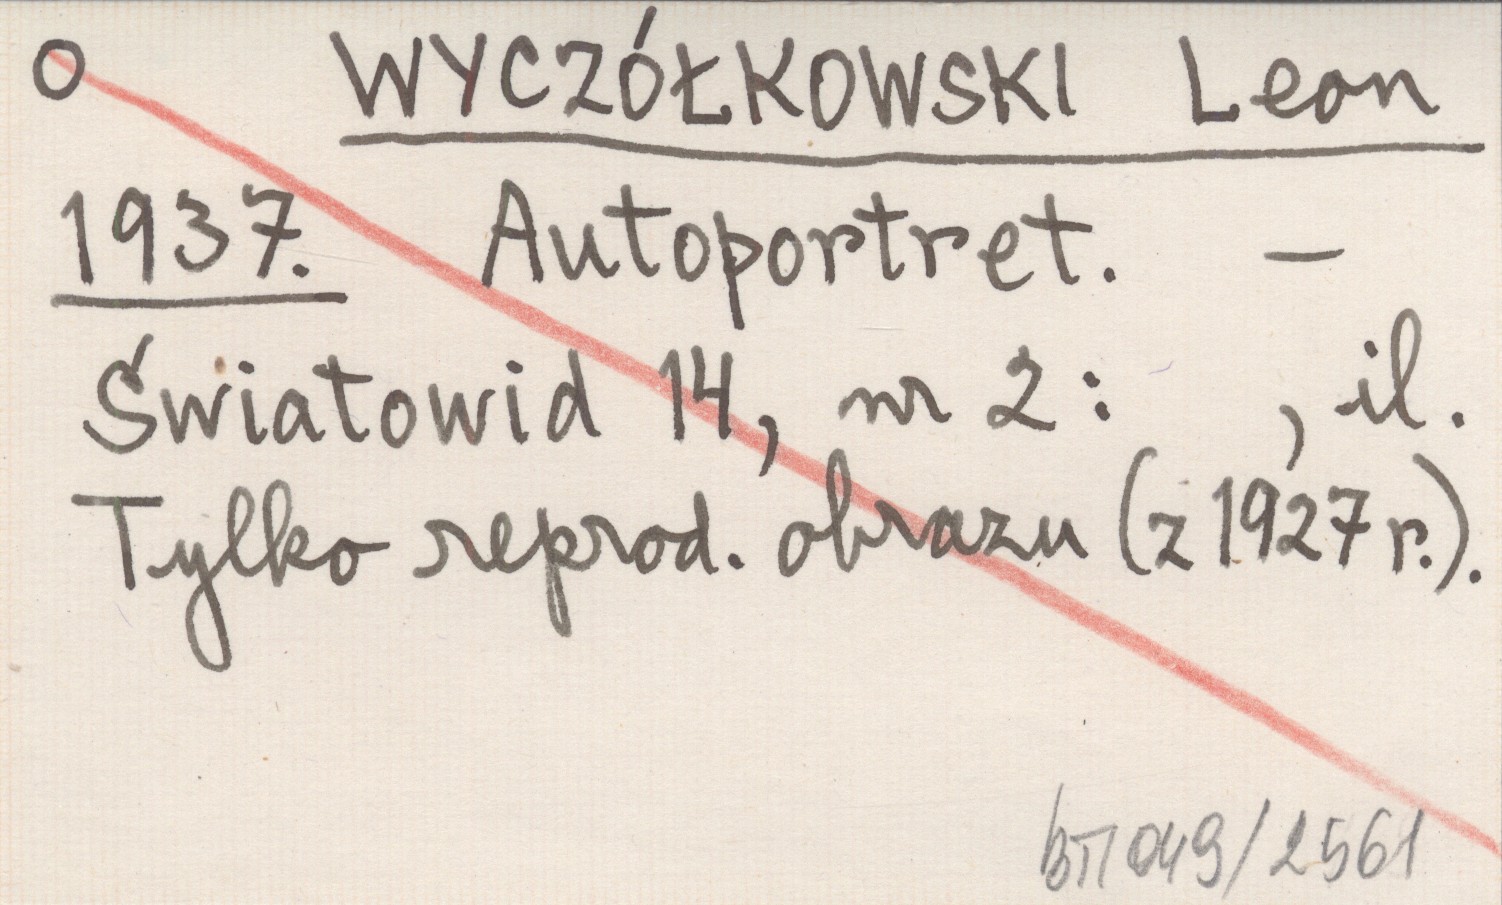 O WYCZÓŁKOWSKI Leon
1937. Autoportret. —
Światowid 14, nr 2: , il.
Tylko reprod. obrazu (z 1927 r.).
049/2561